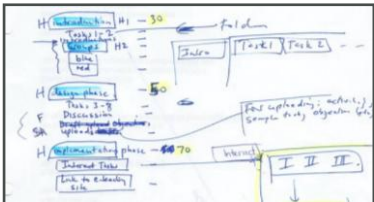 H introduction H1 - 30
Tasks 1-2
folder
groups H2
blue
red
Intro Task 1 Task 2
H design phase - 50
Tasks 3-8
Discussion
uploads
for uploading: activity,
sample task, objective
H implementation phase - 70
Internet Tasks
Link to e-learning
site
Internet
I II III